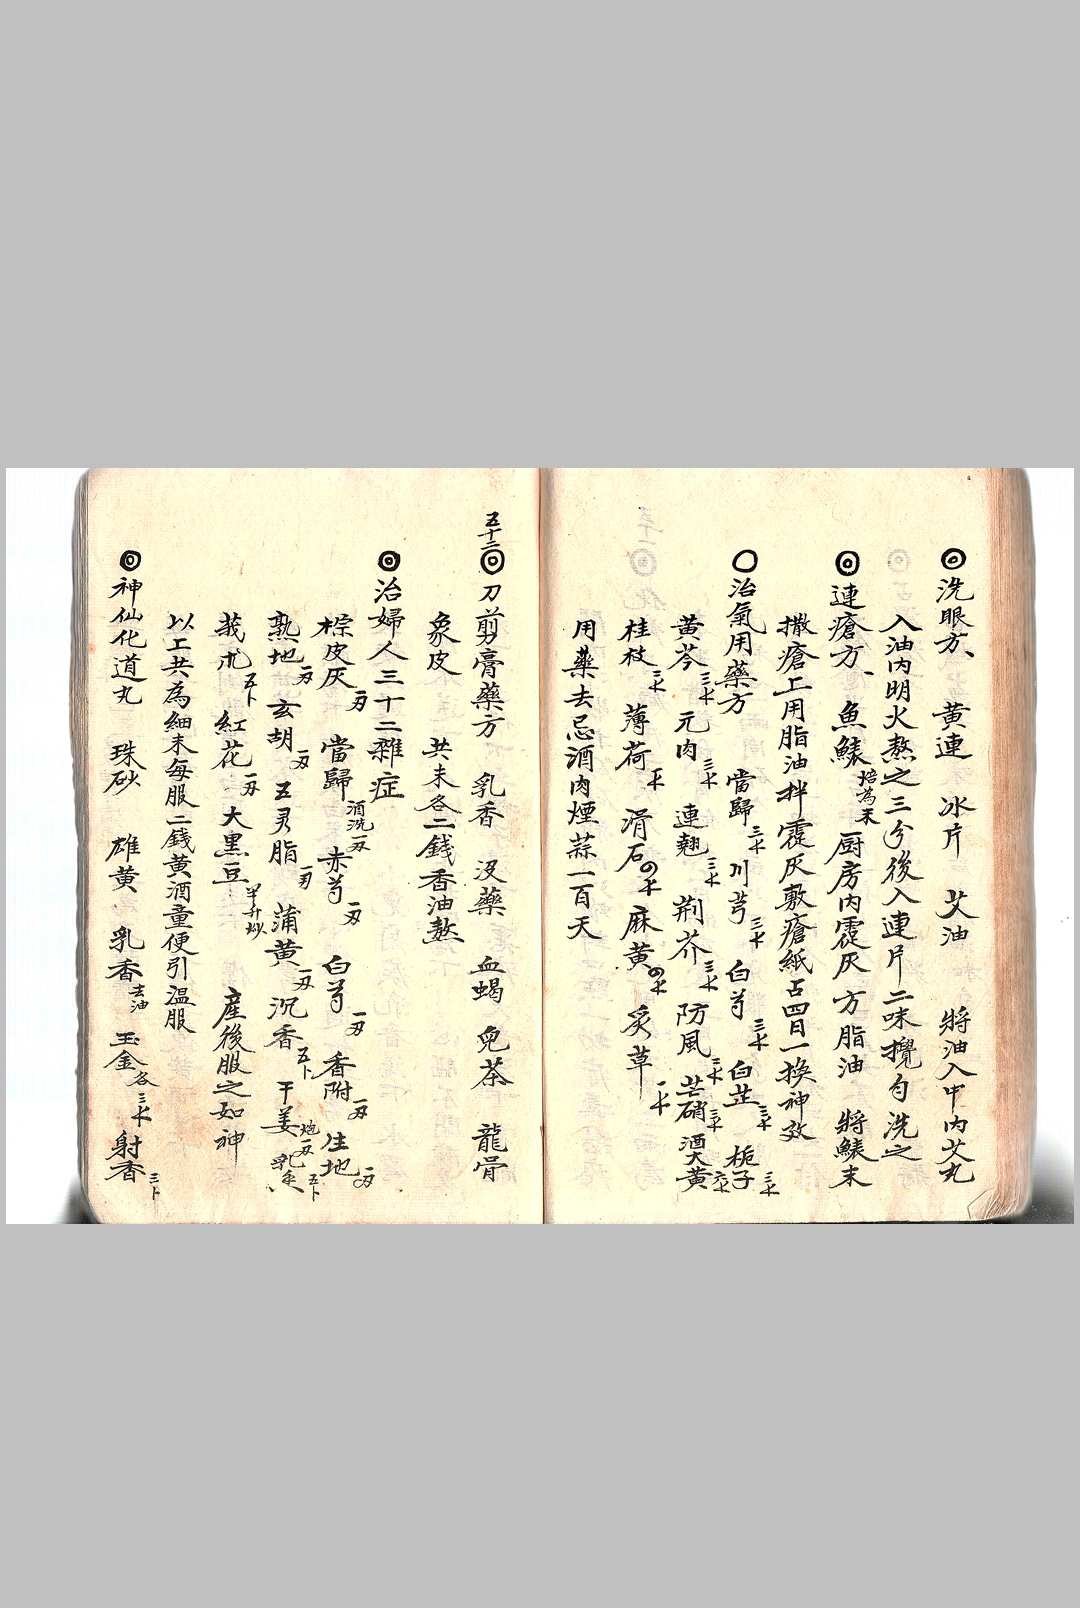 ◎洗眼方、黄連 冰片 艾油 將油入中内艾丸
入油内明火熬之三分後入連片二味攪匀洗之
◎連瘡方、魚鰾焙為末 厨房内霆灰 方脂油 將鰾末
撒瘡上用脂油拌霆灰敷瘡紙占四日一換神效
〇治氣用藥方 當歸三 川芎三 白芍三 白芷三 梔子三
黄芩三 元肉三 連翹三 荆芥三 防風三 芒硝三 酒大黄六
桂枝三 薄荷一 滑石 麻黄 炙草一
用藥去忌酒肉煙蒜一百天
五十二◎刀剪膏藥方 乳香 没藥 血蝎 兒茶 龍骨
象皮 共末各二錢香油熬
◎治婦人三十二雜症
棕皮灰一刄 當歸酒洗一刄 赤芍一刄 白芍一刄 香附一刄 生地一刄
熟地一刄 玄胡一刄 五灵脂一刄 蒲黄一刄 沉香五卜 干姜炮一刄 乳
莪朮五卜 紅花一刄 大黒豆半升炒 産後服之如神
以工共為細末每服二錢黄酒童便引温服
◎神仙化道丸 珠砂 雄黄 乳香去油 玉金各三 射香三卜